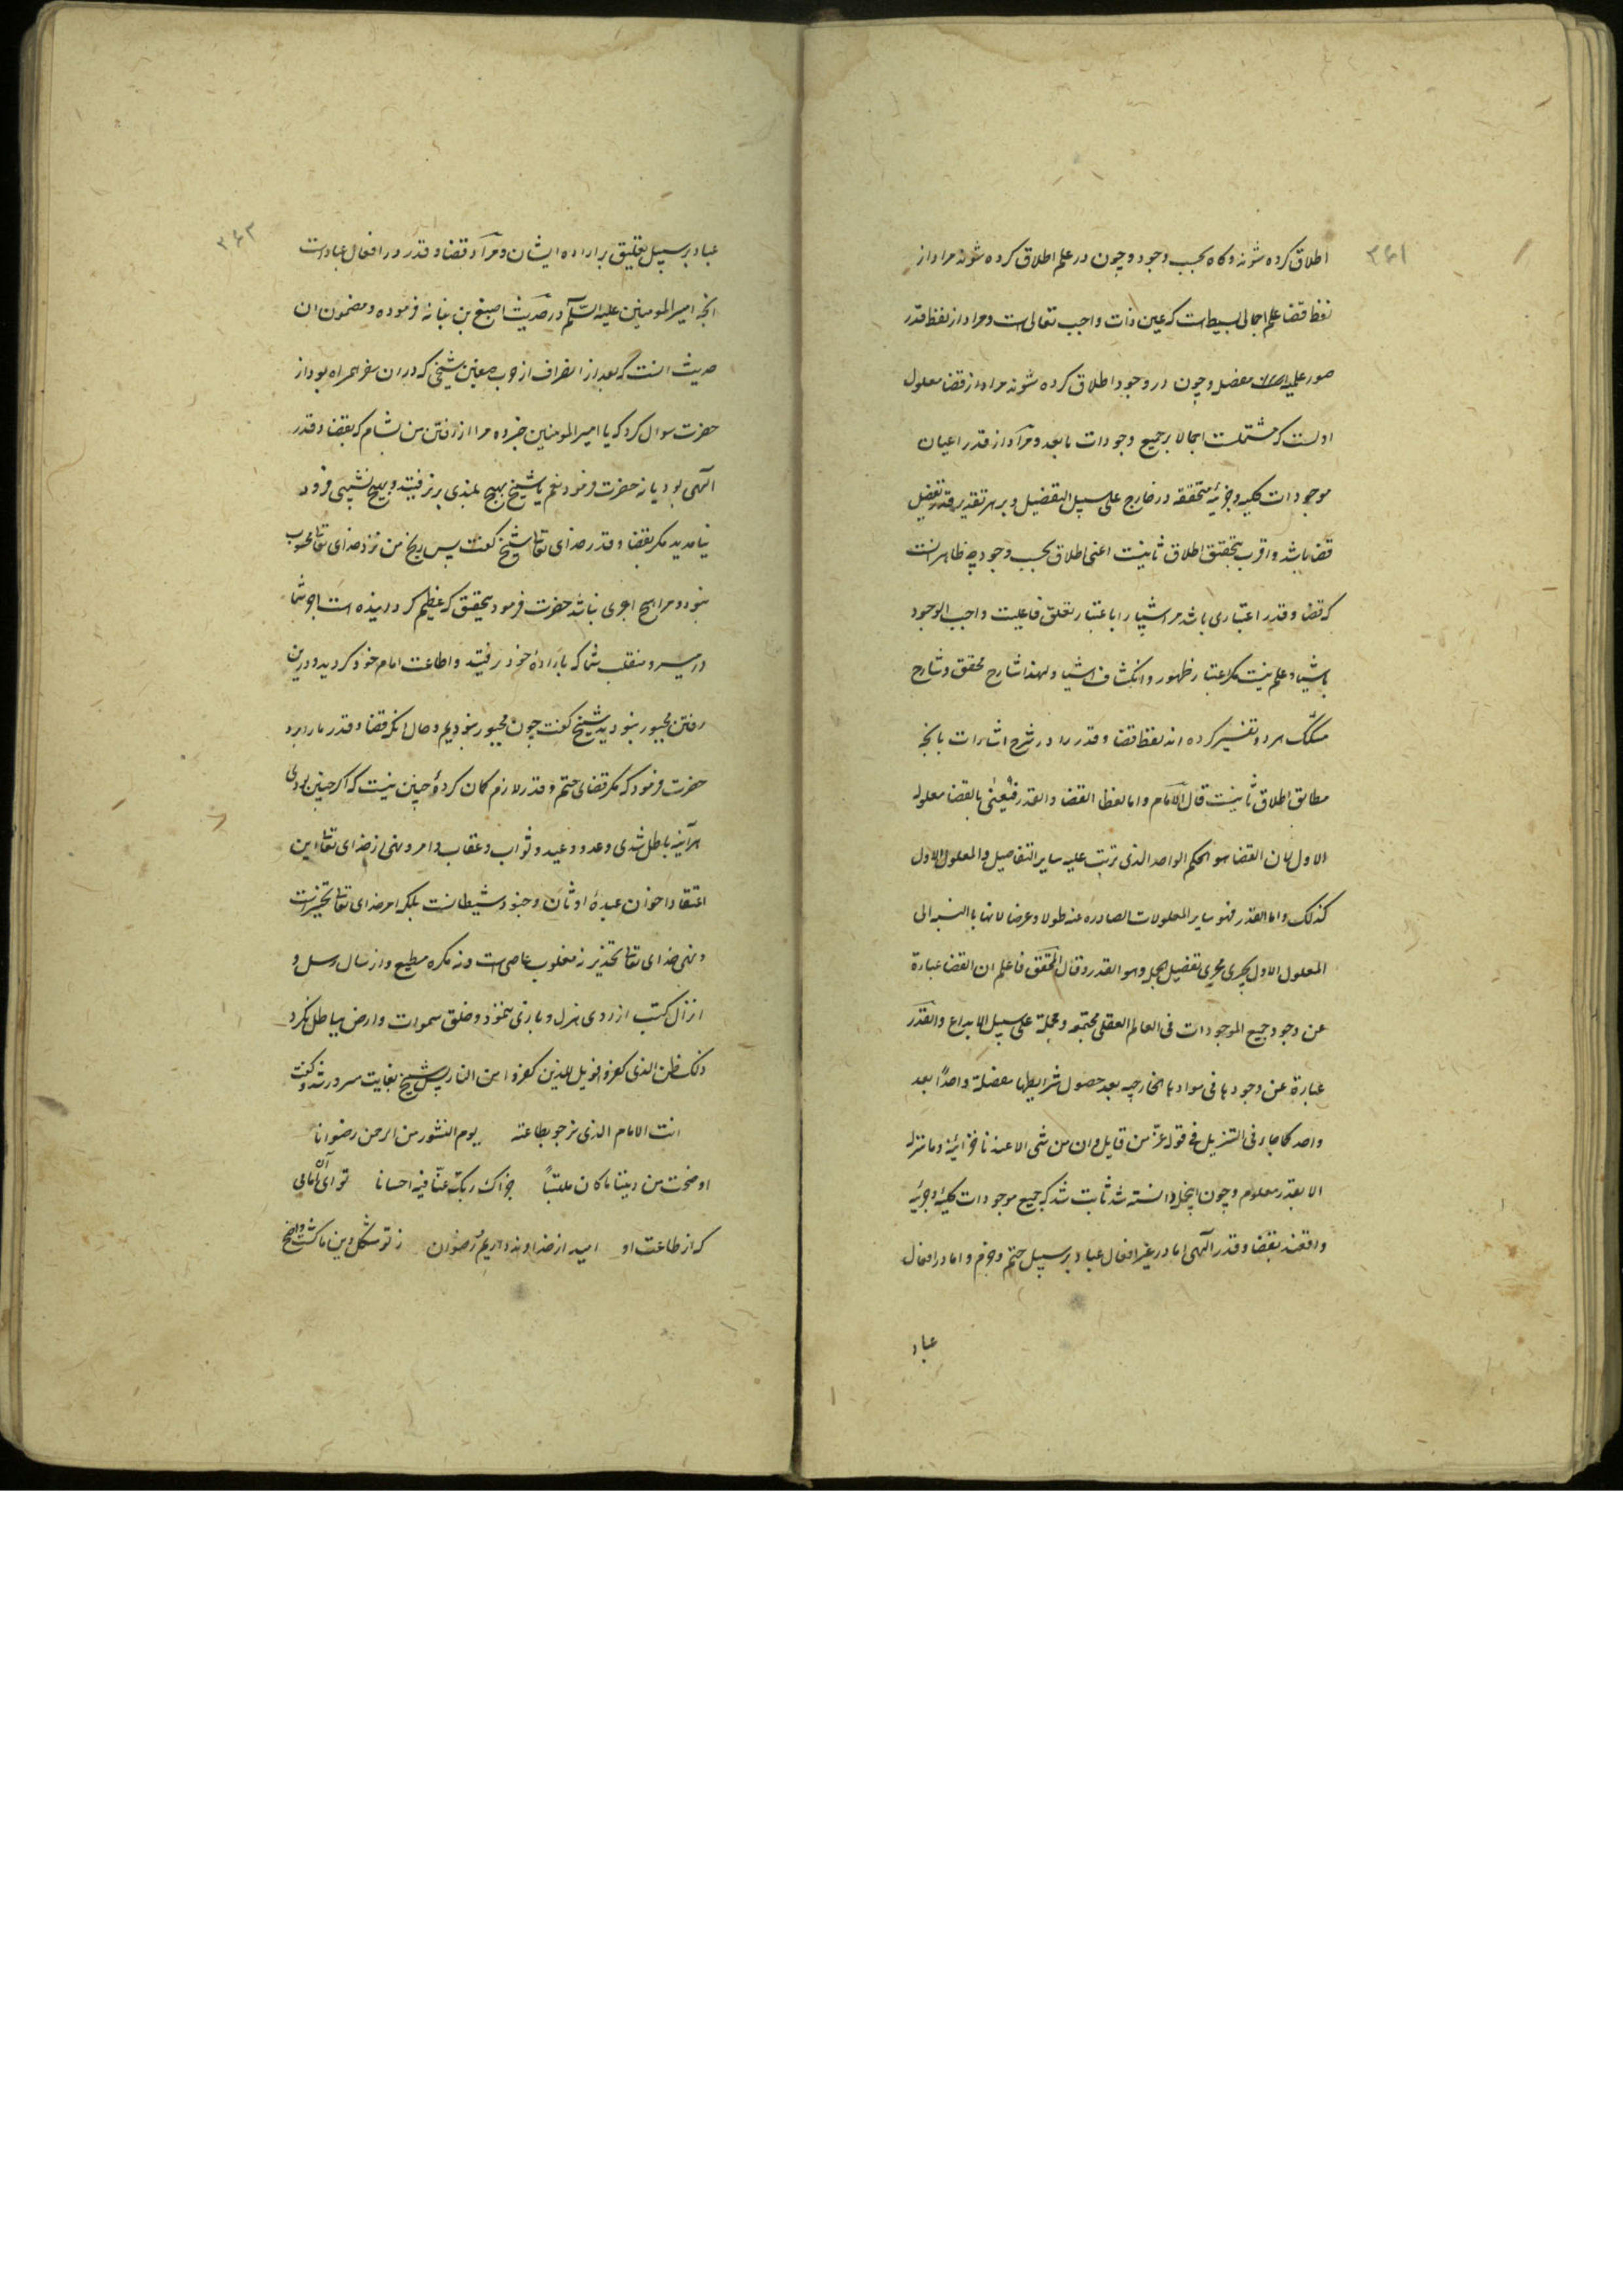 ۳۶۱
اطلاق کرده شوند و کاه بحسب وجود و چون در علم اطلاق کرده شوند مراد از
لفظ قضا علم اجمالی بسیط است که عین ذات واجب تعالی است و مراد از لفظ قدر
صور علمیه مفصل و چون در وجود اطلاق کرده شوند مراد از قضا معلول
اولست که مشتملست اجمالا بر جمیع وجودات ما بعد و مراد از قدر اعیان
موجودات کلیه و جزئیه متحققه در خارج علی سبیل التفصیل و بر هر تقدیر قدر تفصیل
قضا باشد و اقرب بتحقیق اطلاق ثانیست اعنی اطلاق بحسب وجود چه ظاهر انست
که قضا و قدر اعتباری باشد مر اشیا را باعتبار تعلق فاعلیت واجب الوجود
باشیا و علم نیست مکر اعتبار ظهور و انکشاف اشیا و لهذا شارح محقق و شارح
مشکک هر دو تفسیر کرده اند لفظ قضا و قدر را در شرح اشارات بانچه
مطابق اطلاق ثانیست قال الامام و اما لفظا القضا و القدر فیعنی بالقضا معلوله
الاول لان القضا هو الحکم الواحد الذی ترتب علیه سایر التفاصیل و المعلول الاول
کذلک و اما القدر فهو سایر المعلولات الصادره عنه طولا و عرضا لانها بالنسبه الی
المعلول الاول یجری مجری تفصیل الجمله و هو القدر و قال المحقق فاعلم ان القضا عبارة
عن وجود جمیع الموجودات فی العالم العقلی مجتمعه و مجملة علی سبیل الابداع و القدر
عبارة عن وجودها فی موادها الخارجیه بعد حصول شرایطها مفصلة واحدا بعد
واحد کما جاء فی التنزیل فی قوله عز من قایل و ان من شی الا عندنا خزائنه و ما ننزله
الا بقدر معلوم و چون اینجمله دانسته شد ثابت شد که جمیع موجودات کلیه و جزئیه
واقعند بقضا و قدر الهی اما در غیر افعال عباد بر سبیل حتم و جزم و اما در افعال
عباد
۳۶۲
عباد بر سبیل تعلیق بر اراده ایشان و مراد قضا و قدر در افعال عبادست
انچه امیر المومنین علیه السلم در حدیث اصبغ بن نباته فرموده و مضمون ان
حدیث انست که بعد از انصراف از حرب صفین شیخی که در ان سفر همراه بود از
حضرت سوال کرد که یا امیر المومنین خبر ده مرا از رفتن من بشام که بقضا و قدر
الهی بود یا نه حضرت فرمود نعم یا شیخ بهیچ بلندی بر نرفتید و بهیچ نشیبی فرود
نیامدید مکر بقضا و قدر خدای تعالی شیخ کفت پس رنج من نزد خدای تعالی محسوب
نبود و مرا هیچ اجری نباشد حضرت فرمود بتحقیق که عظیم کردانیده است اجر شما
در مسیر و منقلب شما که باراده خود رفتید و اطاعت امام خود کردید و درین
رفتن مجبور نبودید شیخ کفت چون مجبور نبودیم و حال انکه قضا و قدر ما را برد
حضرت فرمود که مکر قضای حتم و قدر لازم کمان کرده چنین نیست که اکر چنین بودی
هر آینه باطل شدی وعد و وعید و ثواب و عقاب و امر و نهی از خدای تعالی این
اعتقاد اخوان عبدۀ اوثان و جنود شیطانست بلکه امر خدای تعالی تخییر است
و نهی خدای تعالی تحذیر نه مغلوب عاصی است و نه مکره مطیع و ارسال رسل و
انزال کتب از روی هزل و بازی ننموده و خلق سموات و ارض بباطل نکرده
ذلک ظن الذین کفروا فویل للذین کفروا من النار پس شیخ بغایت مسرور شد و کفت
انت الامام الذی نرجو بطاعته یوم النشور من الرحمن رضوانا
اوضحت من دیننا ما کان ملتبسا جزاک ربک عنا فیه احسانا تو آن امامی
که از طاعت او امید از خداوند داریم رضوان ز تو مشکل دین ما کشت واضح